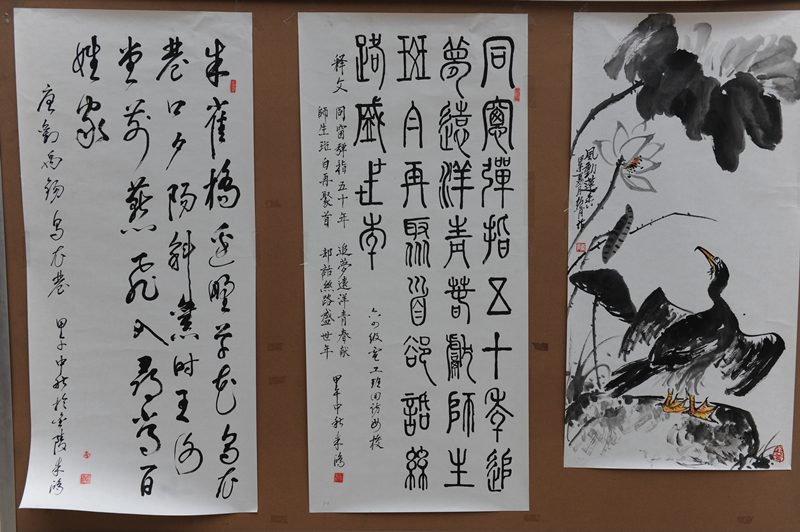 朱雀橋邊野草花烏衣
巷口夕陽斜舊時王謝
堂前燕飛入尋常百
姓家
唐劉禹錫烏衣巷 甲午中秋於金陵朱鴻
同窗彈指五十年追
夢遠洋青春獻師生
班白再聚首卻話絲
路盛世年
释文 同窗弹指五十年 追夢遠洋青春献
師生班白再聚首 却話絲路盛世年
六四级電工班回訪母校
甲午中秋朱鴻
風動蓮香